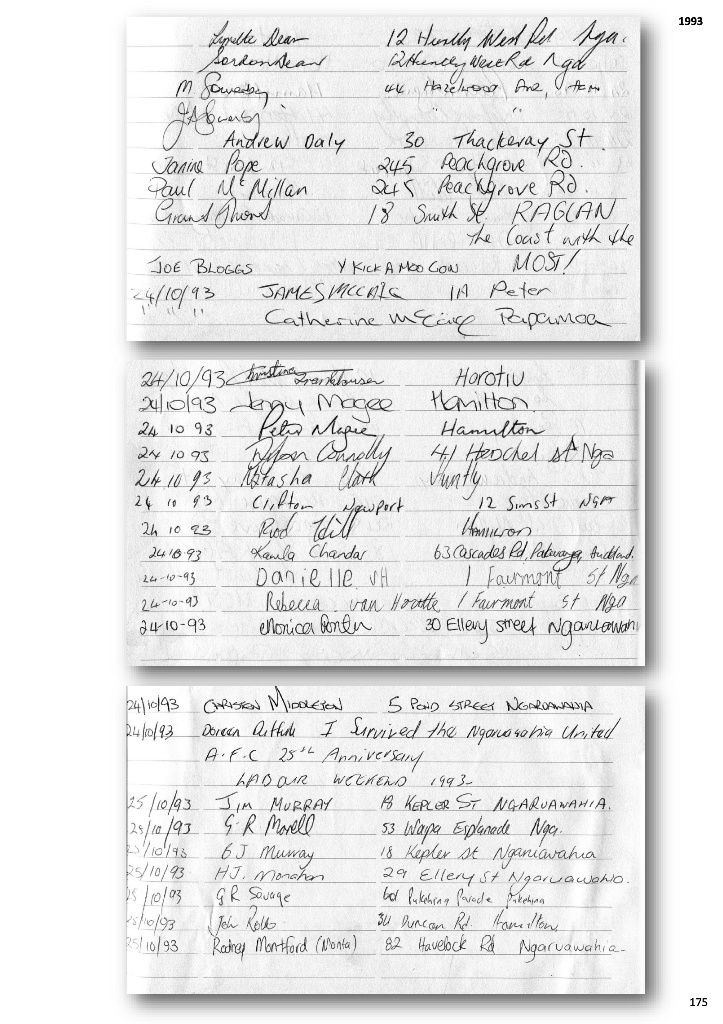 1993
Lynette Dean 12 Huntly West Rd Nga.
Gordon Dean 12 Huntly West Rd Nga
M Sowerby 44 Hazelwood Ave, Ham
J Sowerby " "
Andrew Daly 30 Thackeray St.
Janine Pope 245 Peachgrove Rd.
Paul McMillan 245 Peachgrove Rd.
Grant 18 Smith St. RAGLAN
the Coast with the
JOE BLOGGS Y KICK A MOO COW MOST!
24/10/93 JAMES MCCAIG 1A Peter
" " " Catherine McCaig Papamoa
24/10/93 Christine Horotiu
24/10/93 Jenny Magee Hamilton.
24 10 93 Peter Magee Hamilton
24 10 93 Dylan Connolly 41 Herschel st Nga
24.10.93 Natasha Clark Huntly
24 10 93 Clifton Newport 12 Sims St NGA
24 10 93 Rod Hill Hamilton
24.10.93 Kamla Chandar 63 Cascades Rd, Pakuranga, Auckland.
24-10-93 Danielle VH 1 Fairmont St Nga
24-10-93 Rebecca van Houtte 1 Fairmont St Nga
24-10-93 Monica 30 Ellery street Ngaruawahi
24/10/93 CHRISTEN MIDDLETON 5 POND STREET NGARUAWAHIA
24/10/93 Doreen I Survived the Ngaruawahia United
A.F.C 25th Anniversary
LABOUR WEEKEND 1993-
25/10/93 JIM MURRAY 18 KEPLER ST NGARUAWAHIA.
25/10/93 G.R Morell 53 Waipa Esplanade Nga.
25/10/93 G J Murray 18 Kepler st Ngaruawahia
25/10/93 H.J. Monahan 29 Ellery St Ngaruawahia.
25/10/93 G R Savage Parade
25/10/93 John Robb Duncan Rd. Hamilton
25/10/93 Rodney Montford (Monta) 82 Havelock Rd Ngaruawahia-
175